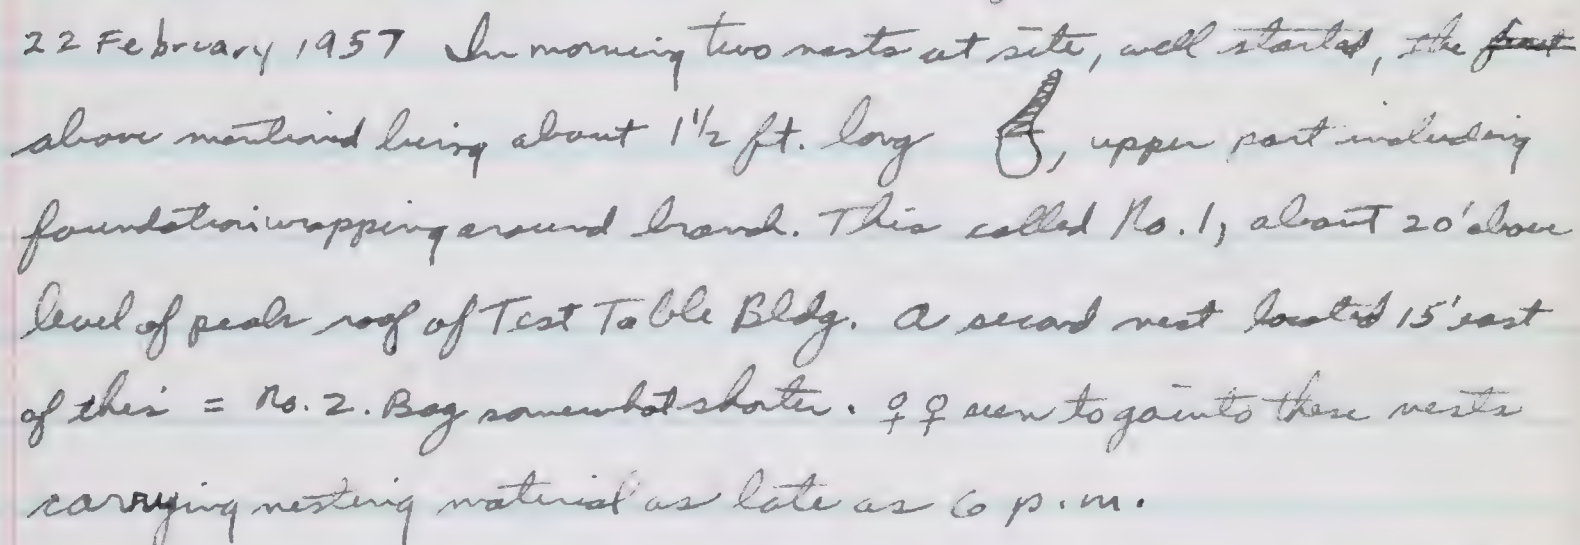 22 February 1957 In morning two nests at site, well started, the first
above mentioned being about 1 1/2 ft. long , upper part including
foundation wrapping around branch. This called No. 1, about 20' above
level of peak roof of Test Table Bldg. A second nest located 15' east
of this = No. 2. Bag somewhat shorter. ♀♀ seen to go into these nests
carrying nesting material as late as 6 p.m.